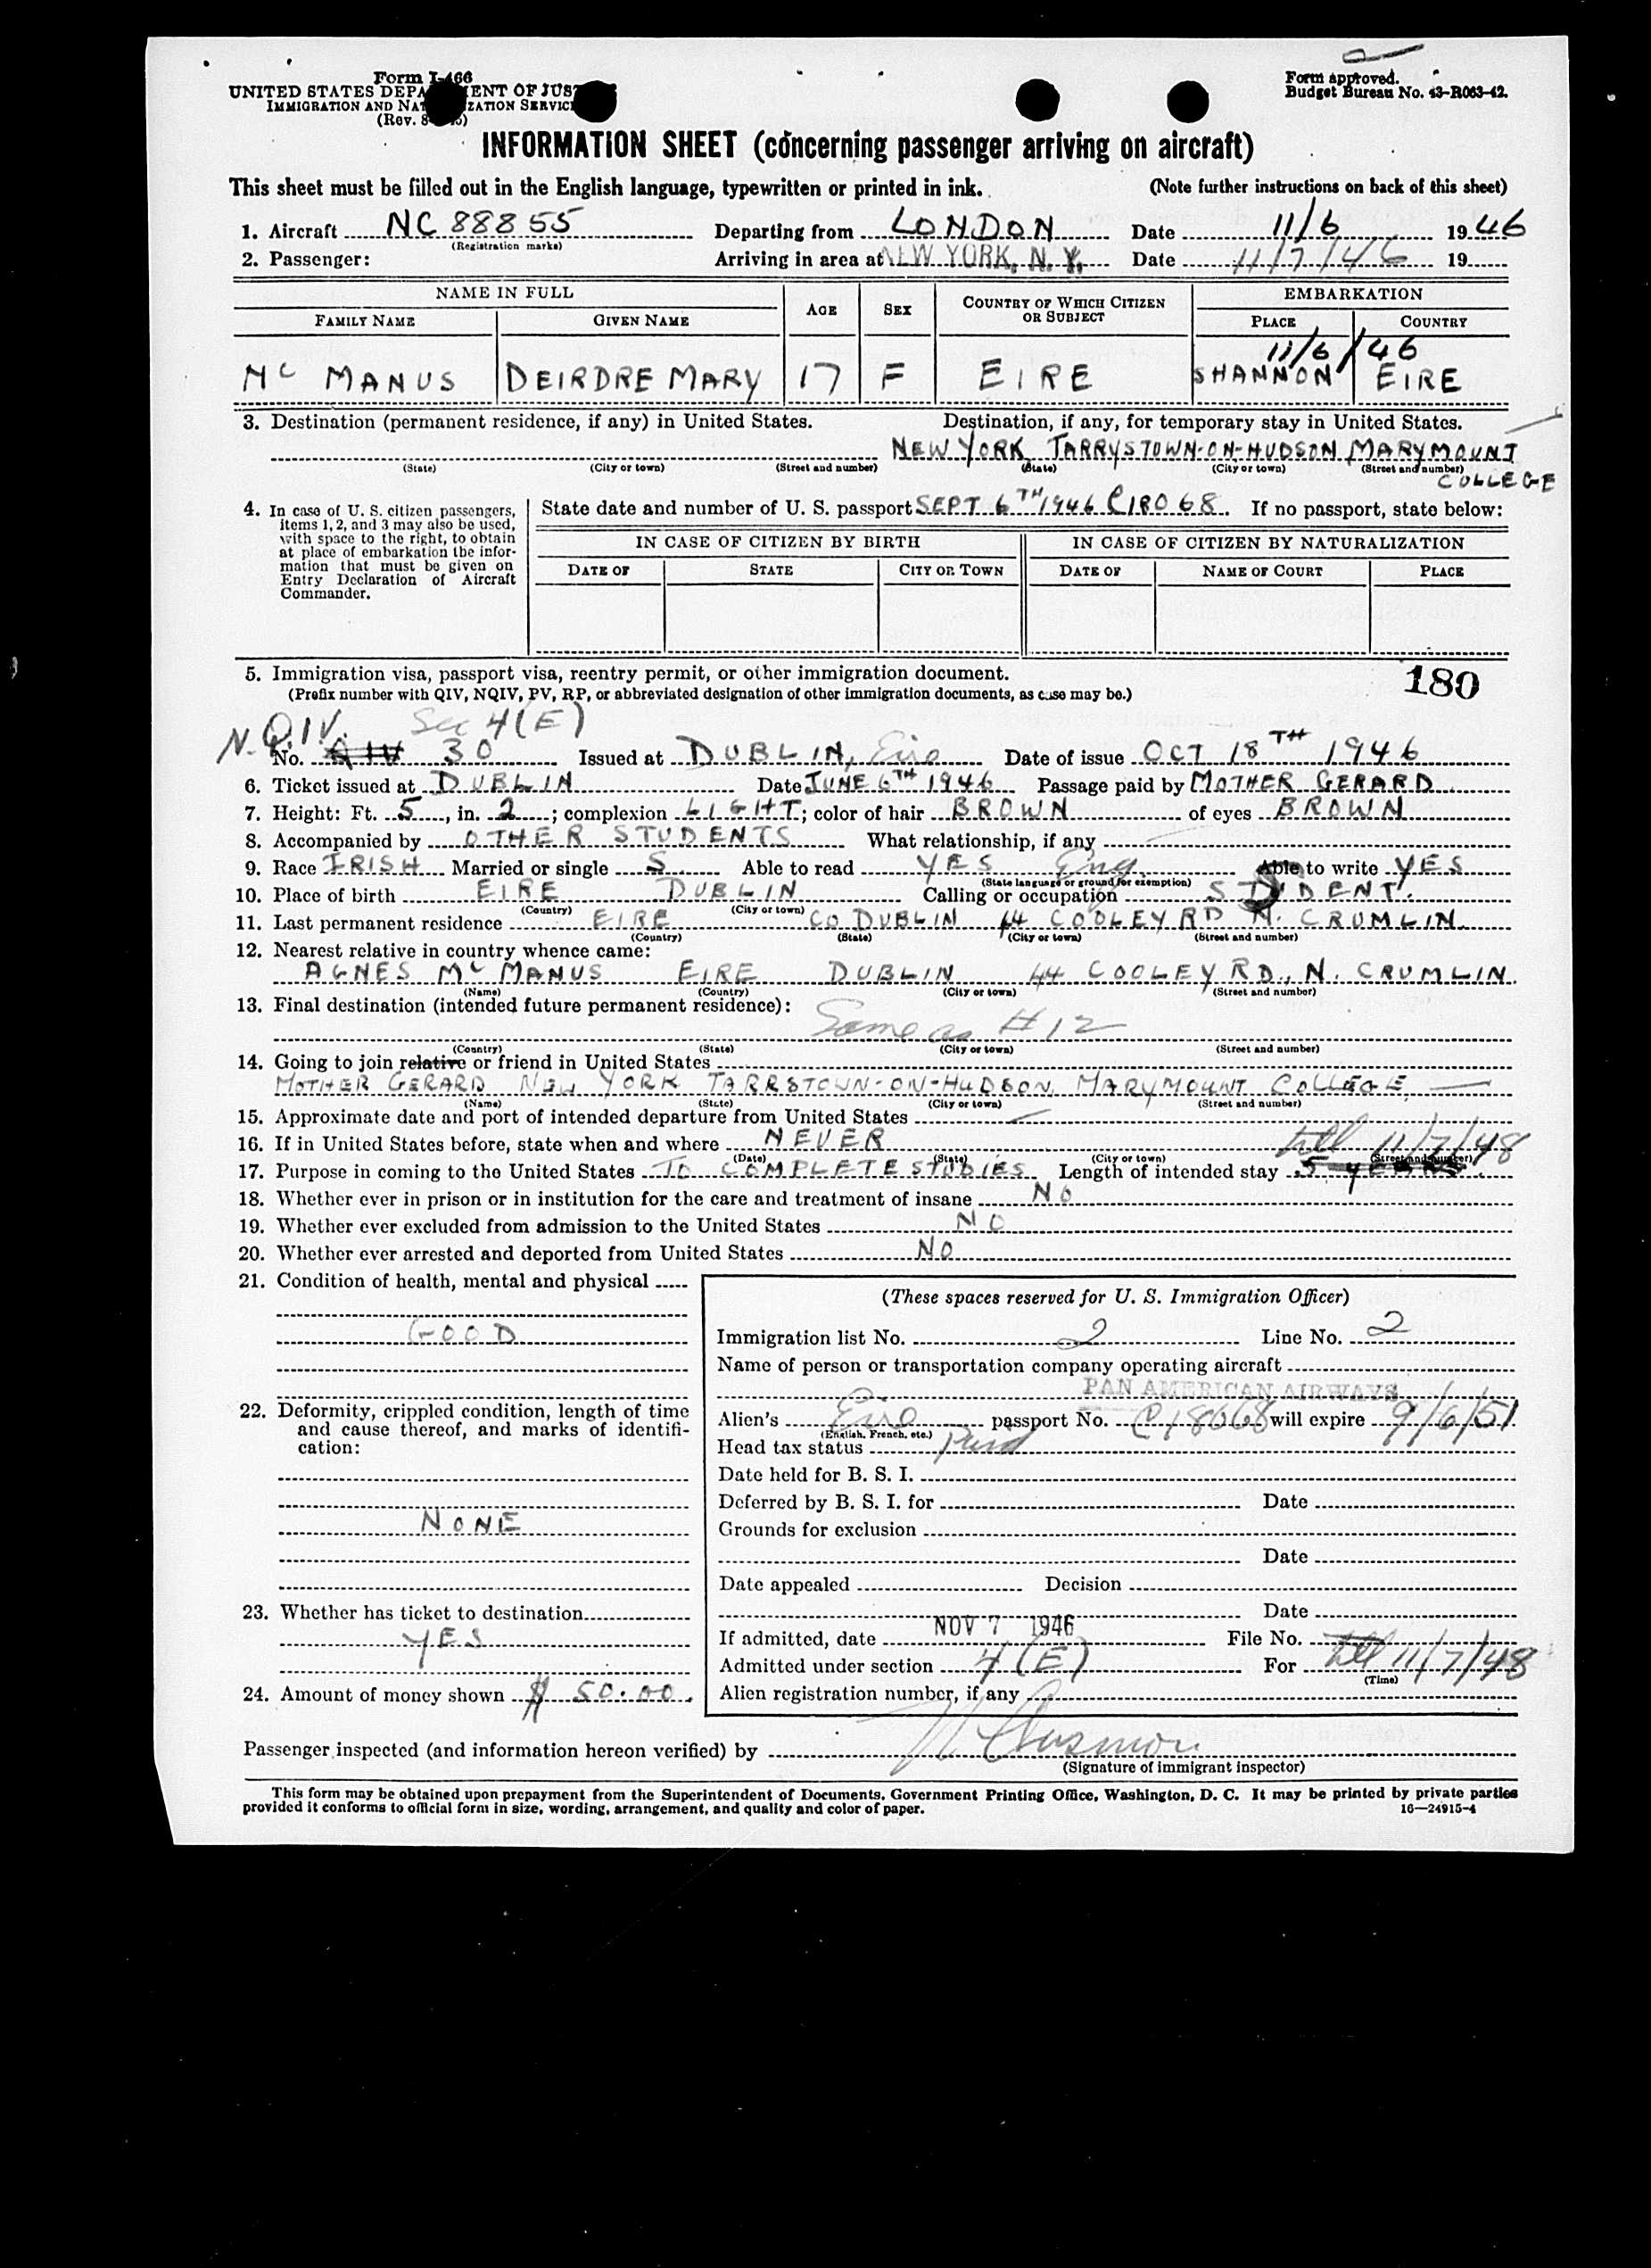 Form I-466
UNITED STATES DEPARTMENT OF JUSTICE
IMMIGRATION AND NATURALIZATION SERVICE
(Rev. 8
Form approved.
Budget Bureau No. 43-R063-42.
INFORMATION SHEET (concerning passenger arriving on aircraft)
This sheet must be filled out in the English language, typewritten or printed in ink. (Note further instructions on back of this sheet)
1. Aircraft NC 88855 Departing from LONDON Date 11/6 1946
(Registration marks)
2. Passenger: Arriving in area at NEW YORK, N. Y. Date 11/7/46 19
NAME IN FULL AGE SEX COUNTRY OF WHICH CITIZEN OR SUBJECT EMBARKATION
FAMILY NAME GIVEN NAME PLACE COUNTRY
11/6/46
Mc MANUS DEIRDRE MARY 17 F EIRE SHANNON EIRE
3. Destination (permanent residence, if any) in United States. Destination, if any, for temporary stay in United States.
NEW YORK TARRYSTOWN-ON-HUDSON MARYMOUNT
(State) (City or town) (Street and number) (State) (City or town) (Street and number)
COLLEGE
4. In case of U. S. citizen passengers, items 1, 2, and 3 may also be used, with space to the right, to obtain at place of embarkation the information that must be given on Entry Declaration of Aircraft Commander.
State date and number of U. S. passport SEPT 6TH 1946 C18068. If no passport, state below:
IN CASE OF CITIZEN BY BIRTH IN CASE OF CITIZEN BY NATURALIZATION
DATE OF STATE CITY OR TOWN DATE OF NAME OF COURT PLACE
5. Immigration visa, passport visa, reentry permit, or other immigration document.
(Prefix number with QIV, NQIV, PV, RP, or abbreviated designation of other immigration documents, as case may be.)
180
N. Q.I.V. Sec 4(E)
No. QIV 30 Issued at DUBLIN, Eire Date of issue OCT 18TH 1946
6. Ticket issued at DUBLIN Date JUNE 6TH 1946 Passage paid by MOTHER GERARD
7. Height: Ft. 5, in. 2; complexion LIGHT; color of hair BROWN of eyes BROWN
8. Accompanied by OTHER STUDENTS What relationship, if any
9. Race IRISH Married or single S. Able to read YES Eng Able to write YES
(State language or ground for exemption)
10. Place of birth EIRE DUBLIN Calling or occupation STUDENT.
(Country) (City or town)
11. Last permanent residence EIRE CO DUBLIN 44 COOLEY RD N. CRUMLIN
(Country) (State) (City or town) (Street and number)
12. Nearest relative in country whence came:
AGNES Mc MANUS EIRE DUBLIN 44 COOLEY RD., N. CRUMLIN.
(Name) (Country) (City or town) (Street and number)
13. Final destination (intended future permanent residence):
Same as #12
(Country) (State) (City or town) (Street and number)
14. Going to join relative or friend in United States
MOTHER GERARD NEW YORK TARRSTOWN-ON-HUDSON, MARYMOUNT COLLEGE
(Name) (State) (City or town) (Street and number)
15. Approximate date and port of intended departure from United States
16. If in United States before, state when and where NEVER till 11/7/48
(Date) (State) (City or town) (Street and number)
17. Purpose in coming to the United States TO COMPLETE STUDIES Length of intended stay 5 YEARS
18. Whether ever in prison or in institution for the care and treatment of insane NO
19. Whether ever excluded from admission to the United States NO
20. Whether ever arrested and deported from United States NO
21. Condition of health, mental and physical
GOOD
22. Deformity, crippled condition, length of time and cause thereof, and marks of identification:
NONE
23. Whether has ticket to destination
YES
24. Amount of money shown $ 50.00.
(These spaces reserved for U. S. Immigration Officer)
Immigration list No. 2 Line No. 2
Name of person or transportation company operating aircraft
PAN AMERICAN AIRWAYS
Alien's Eire passport No. C18068 will expire 9/6/51
(English, French, etc.)
Head tax status Paid
Date held for B. S. I.
Deferred by B. S. I. for Date
Grounds for exclusion
Date
Date appealed Decision
Date
If admitted, date NOV 7 1946 File No.
Admitted under section 4(E) For till 11/7/48
(Time)
Alien registration number, if any
Passenger inspected (and information hereon verified) by
(Signature of immigrant inspector)
This form may be obtained upon prepayment from the Superintendent of Documents, Government Printing Office, Washington, D. C. It may be printed by private parties
provided it conforms to official form in size, wording, arrangement, and quality and color of paper. 16—24915-4